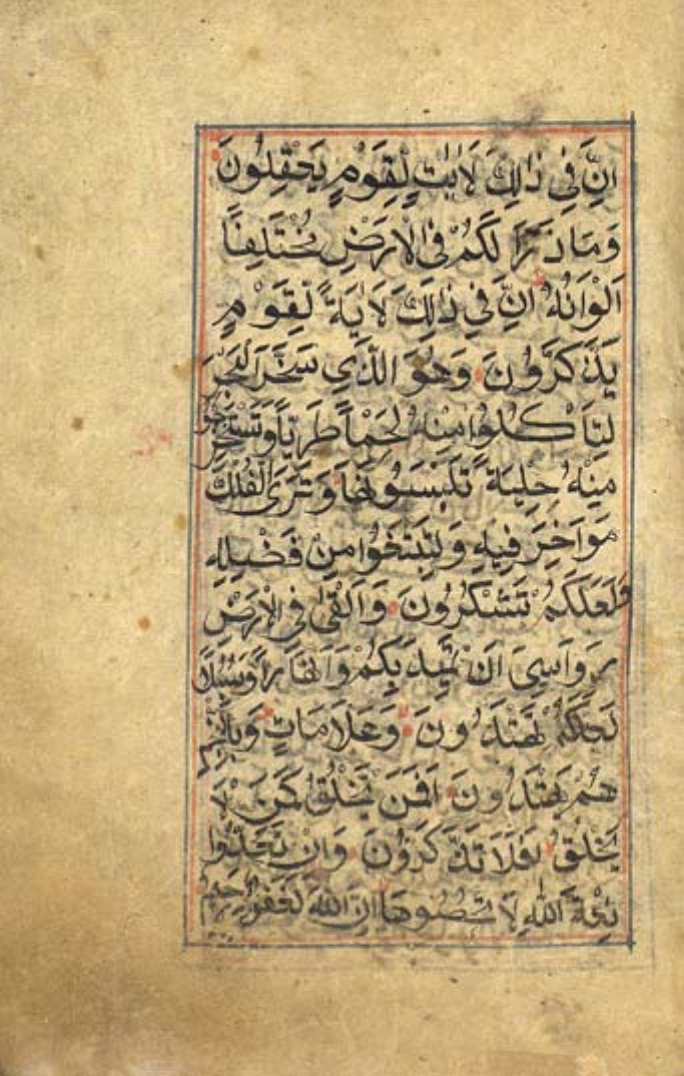 اِنَّ فِي ذٰلِكَ لَاٰيٰتٍ لِقَوْمٍ يَعْقِلُونَ
وَمَا ذَرَاَ لَكُمْ فِي الْاَرْضِ مُخْتَلِفًا
اَلْوَانُهُ اِنَّ فِي ذٰلِكَ لَاٰيَةً لِقَوْمٍ
يَذَّكَّرُونَ وَهُوَ الَّذِي سَخَّرَ الْبَحْرَ
لِتَاْكُلُوا مِنْهُ لَحْمًا طَرِيًّا وَتَسْتَخْرِجُوا
مِنْهُ حِلْيَةً تَلْبَسُونَهَا وَتَرَى الْفُلْكَ
مَوَاخِرَ فِيهِ وَلِتَبْتَغُوا مِنْ فَضْلِهِ
وَلَعَلَّكُمْ تَشْكُرُونَ وَاَلْقٰى فِي الْاَرْضِ
رَوَاسِيَ اَنْ تَمِيدَ بِكُمْ وَاَنْهَارًا وَسُبُلًا
لَعَلَّكُمْ تَهْتَدُونَ وَعَلَامَاتٍ وَبِالنَّجْمِ
هُمْ يَهْتَدُونَ اَفَمَنْ يَخْلُقُ كَمَنْ لَا
يَخْلُقُ اَفَلَا تَذَكَّرُونَ وَاِنْ تَعُدُّوا
نِعْمَةَ اللّٰهِ لَا تُحْصُوهَا اِنَّ اللّٰهَ لَغَفُورٌ رَحِيمٌ